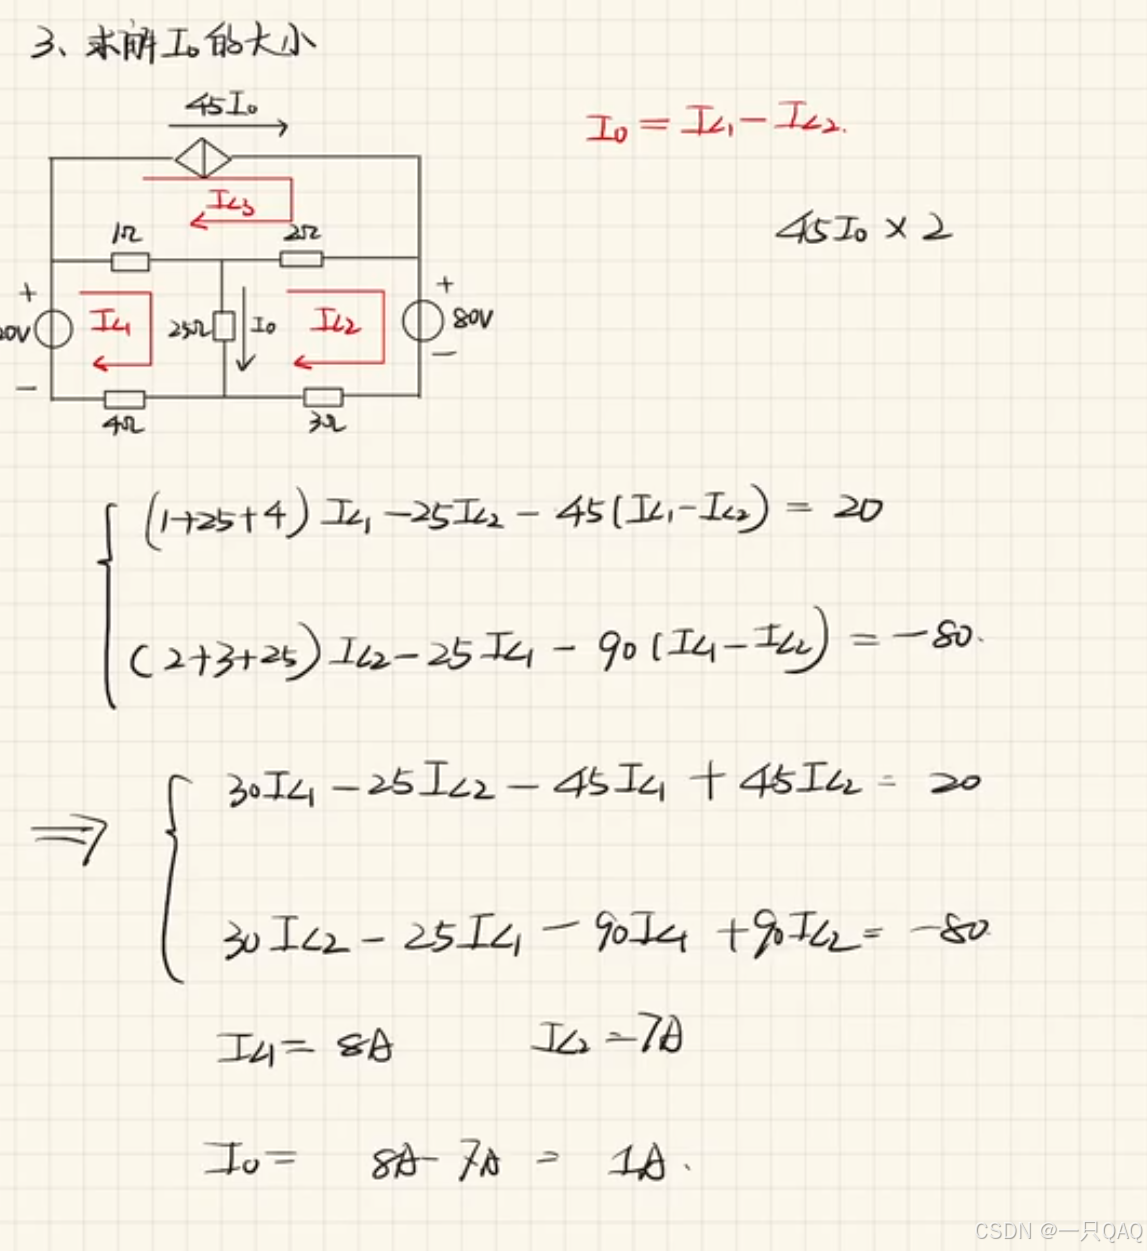 3、求解I₀的大小
45I₀
I₀ = IL₁ - IL₂.
45I₀ × 2
IL₃
1Ω
2Ω
+
+
20V
IL₁
25Ω
I₀
IL₂
80V
-
-
4Ω
3Ω
(1+25+4) IL₁ - 25IL₂ - 45(IL₁-IL₂) = 20
(2+3+25) IL₂ - 25IL₁ - 90(IL₁-IL₂) = -80.
⇒
30IL₁ - 25IL₂ - 45IL₁ + 45IL₂ = 20
30IL₂ - 25IL₁ - 90IL₁ + 90IL₂ = -80
IL₁ = 8A IL₂ = 7A
I₀ = 8A - 7A = 1A.
CSDN @一只QAQ